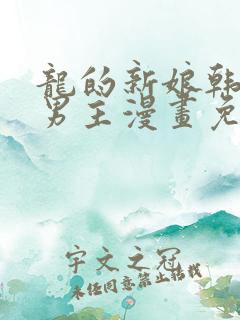 龍的新娘韩
男主漫畫免
宇文之冠
未经同意禁止转载